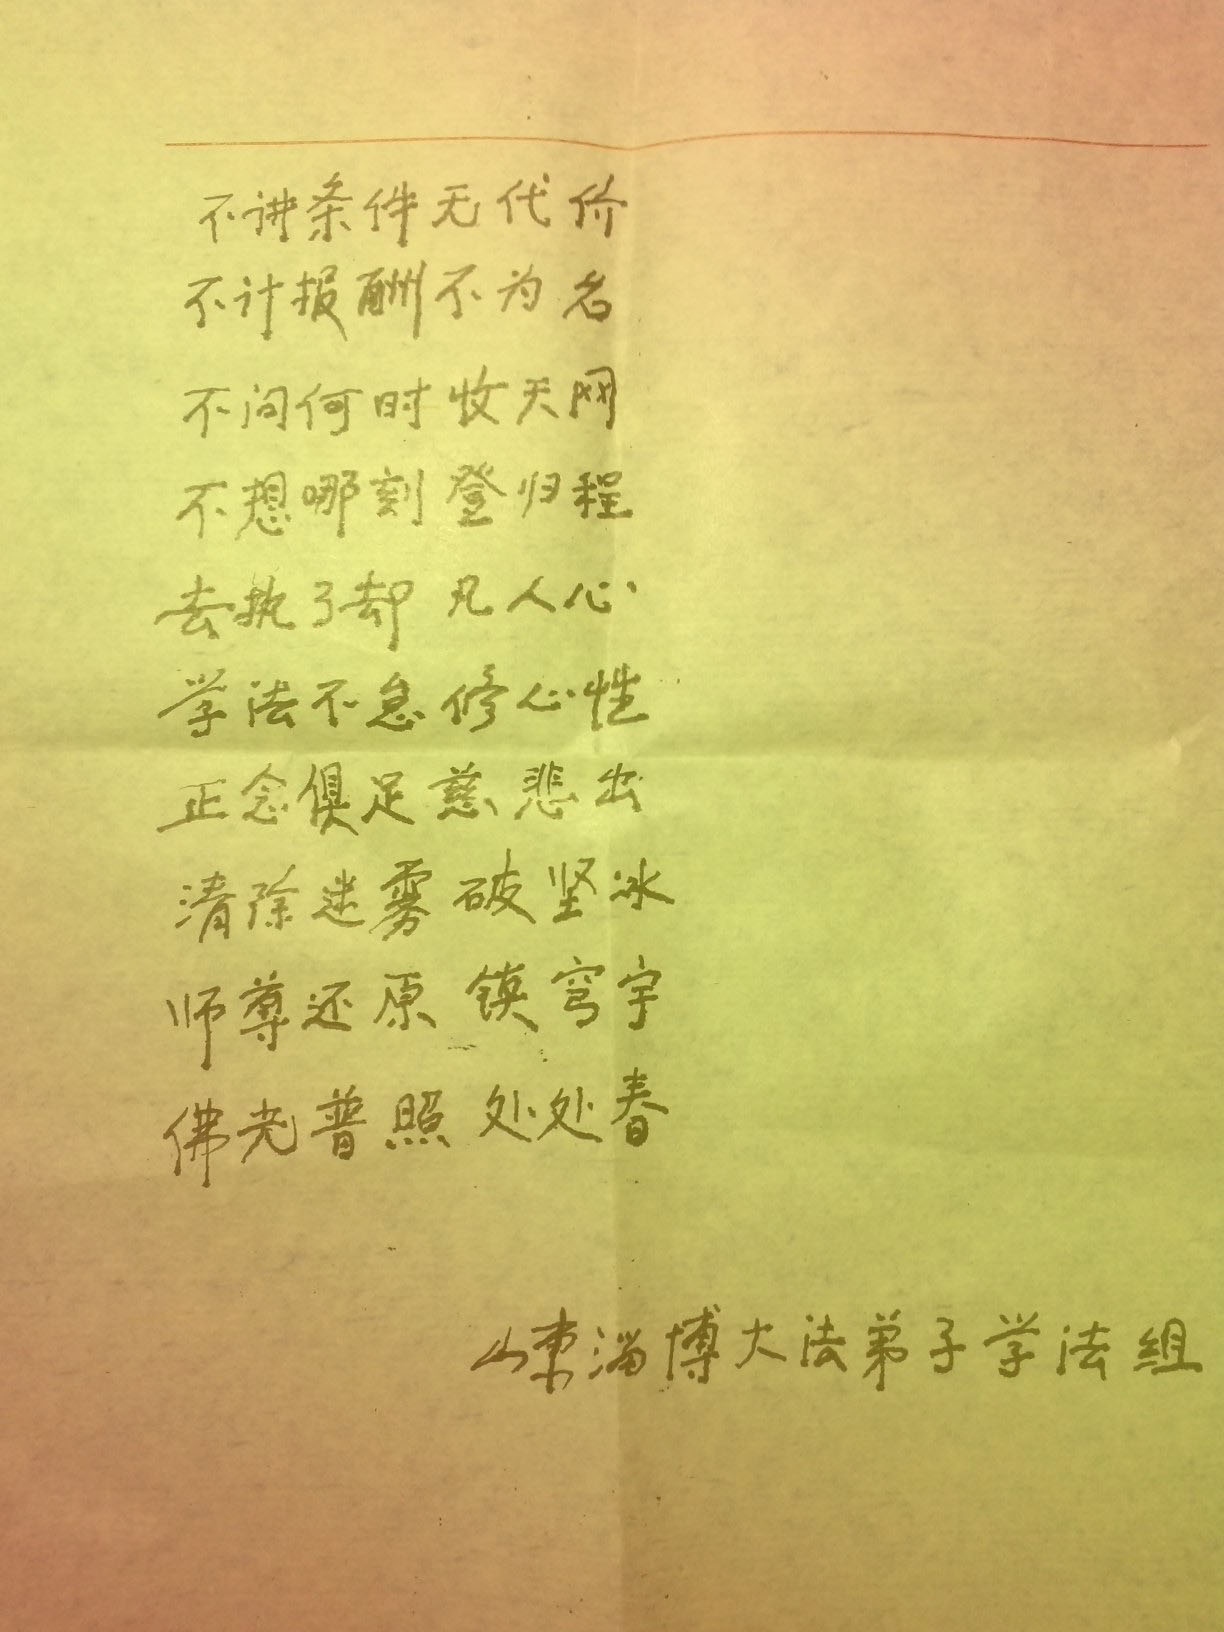 不讲条件无代价
不计报酬不为名
不问何时收天网
不想哪刻登归程
去执了却凡人心
学法不怠修心性
正念俱足慈悲出
清除迷雾破坚冰
师尊还原镇穹宇
佛光普照处处春
山东淄博大法弟子学法组